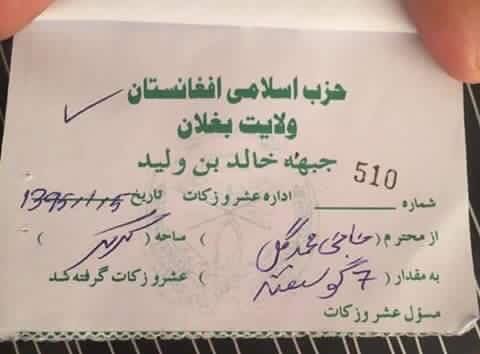 حزب اسلامی افغانستان
ولایت بغلان
جبهه خالد بن ولید
شماره 510 اداره عشر و زکات تاریخ 1395/1/5
از محترم ( حاجی محمد گل ) ساحه ( )
به مقدار ( 7 گوسفند ) عشر و زکات گرفته شد
مسؤل عشر و زکات